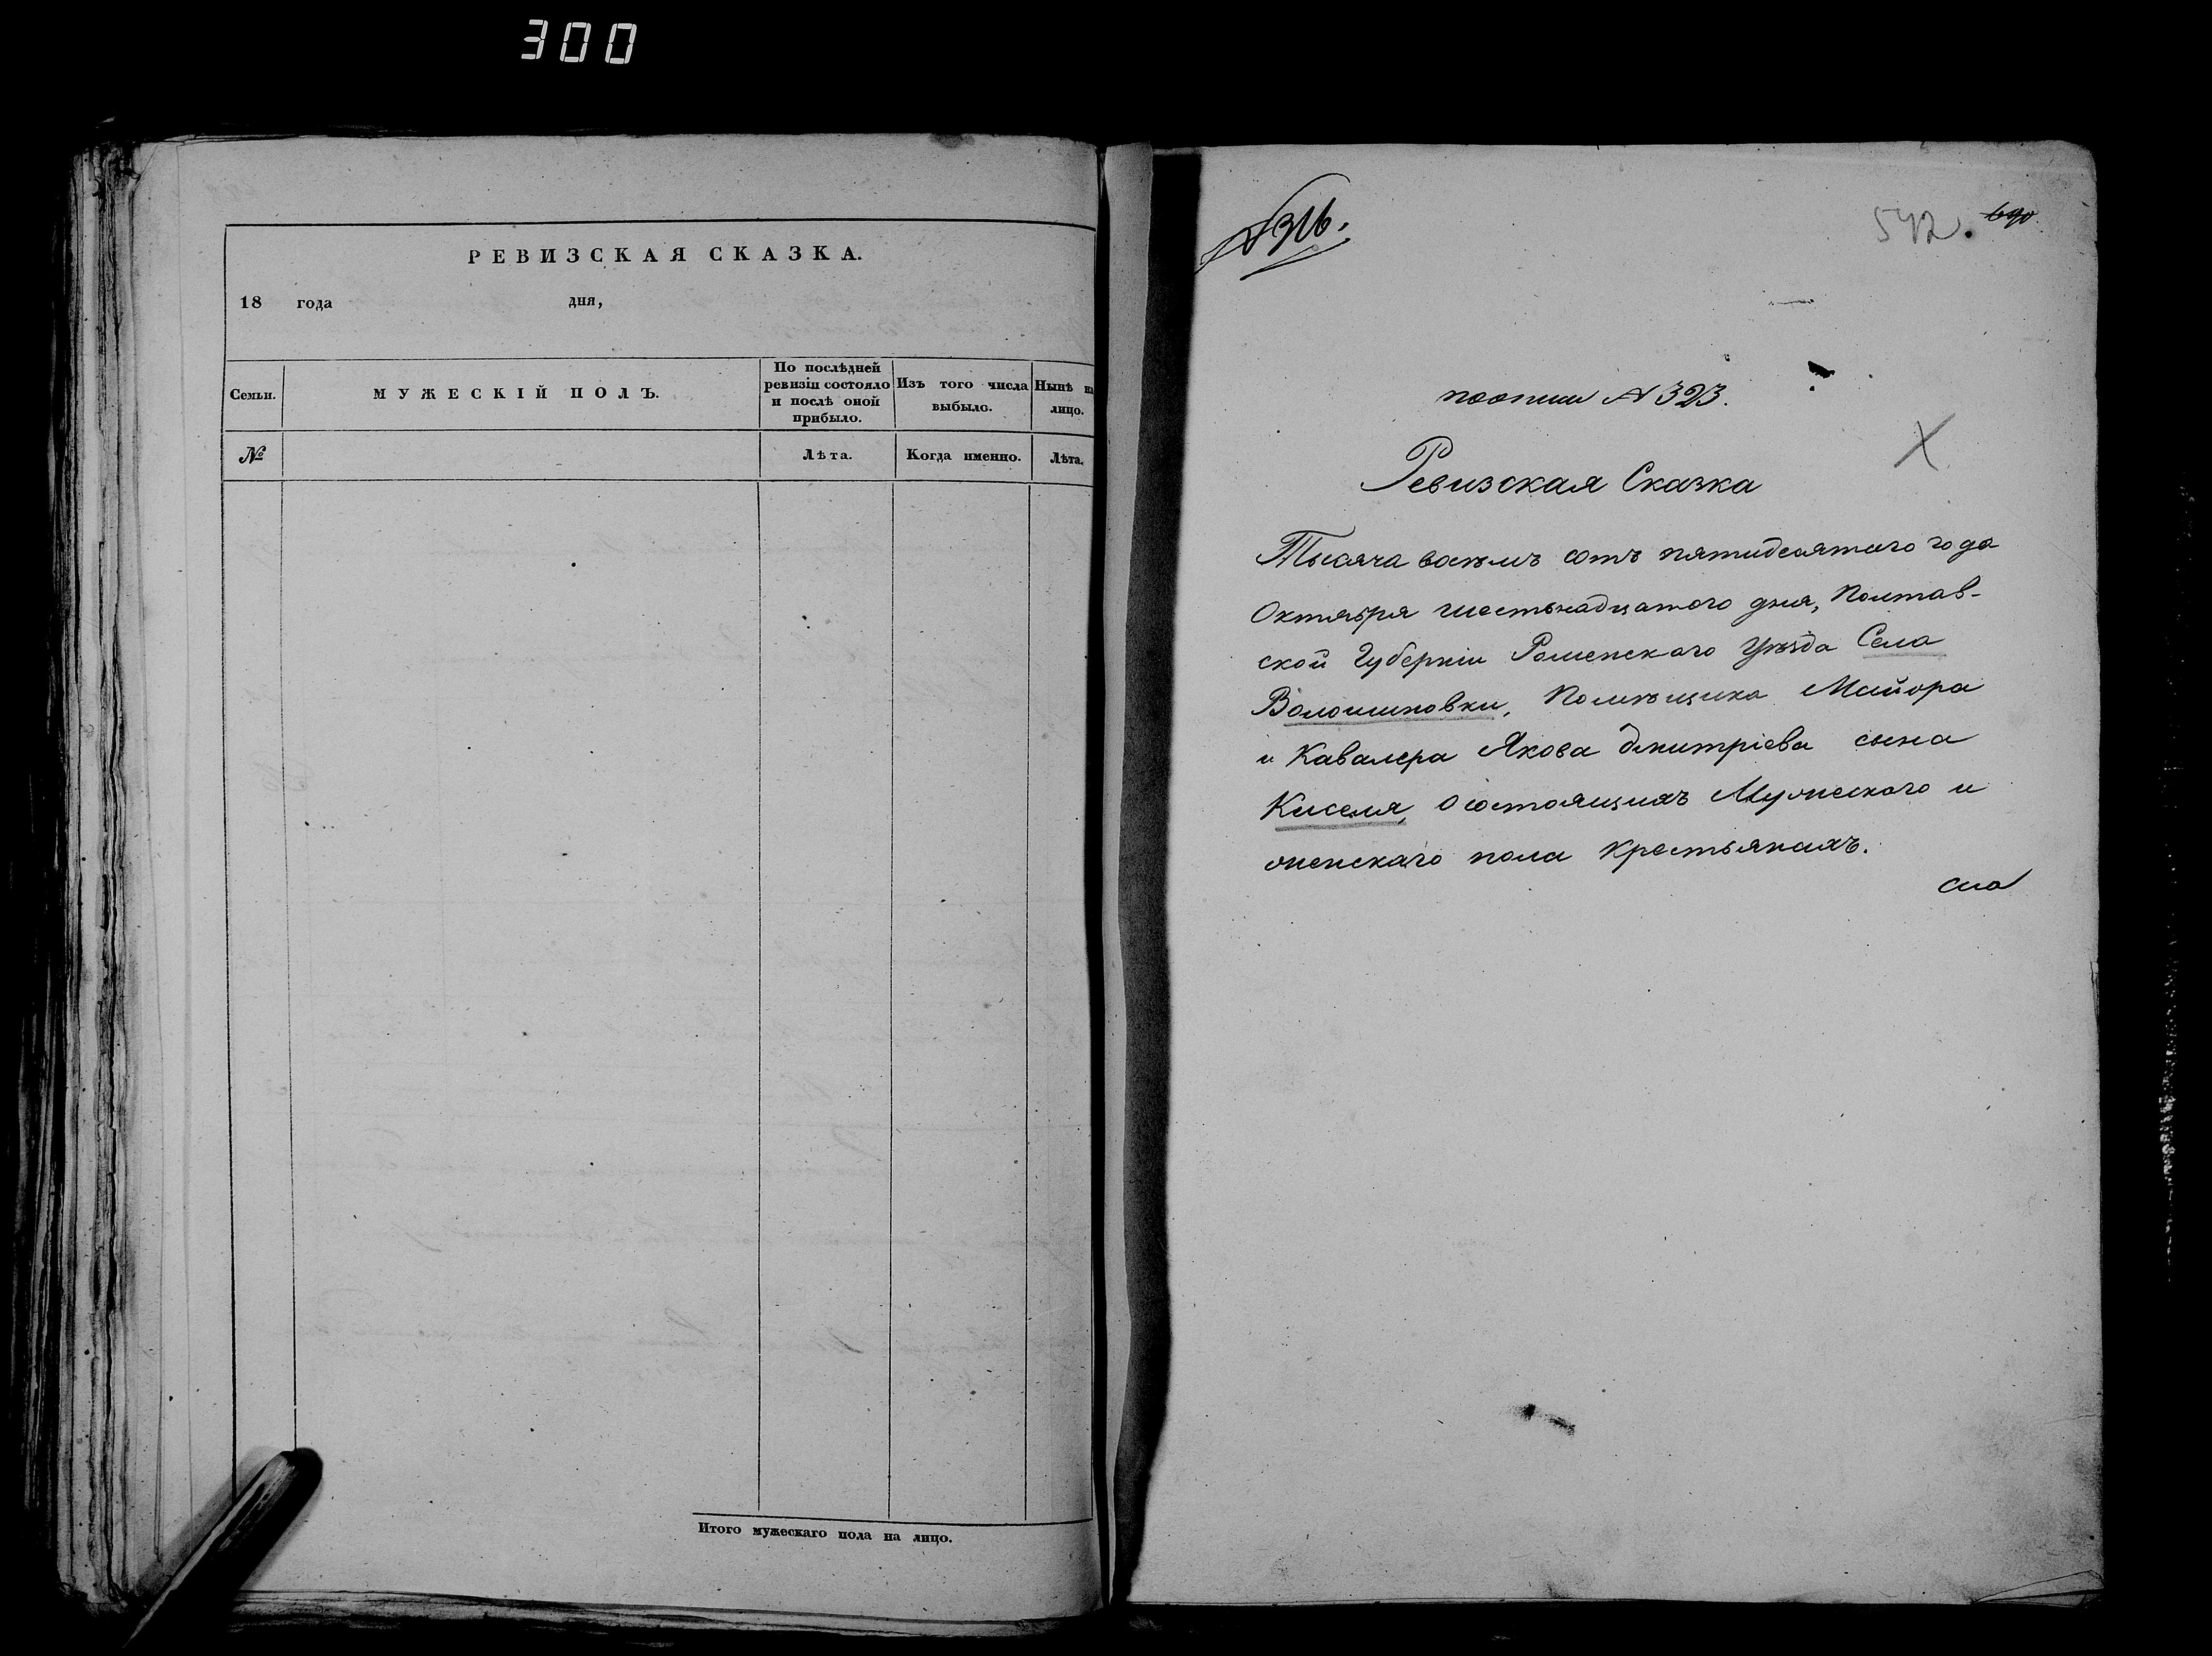 300
РЕВИЗСКАЯ СКАЗКА.
18 года дня,
Семьи.
МУЖЕСКІЙ ПОЛЪ.
По послѣдней
ревизіи состояло
и послѣ оной
прибыло.
Изъ того числа
выбыло.
Нынѣ на
лицо.
№
Лѣта.
Когда именно.
Лѣта.
Итого мужескаго пола на лицо.
№316.
542. 690
поописи №323.
Х
Ревизская Сказка
Тысяча восемъ сотъ пятидесятаго года
Октября шестьнадцатого дня, Полтав-
ской Губерніи Роменского Уѣзда Села
Волошиновки, Помѣщика Маиора
и Кавалера Якова Дмитріева сына
Киселя, о состоящихъ Мужеского и
женскаго пола крестьянахъ.